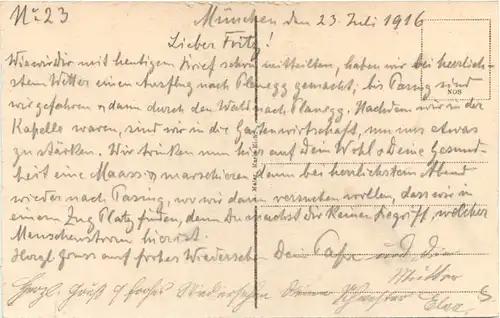 No 23
München den 23. Juli 1916
Lieber Fritz!
Wie wir Dir mit heutigem Brief schon mitteilten, haben wir bei herrlich-
stem Wetter einen Ausflug nach Planegg gemacht; bis Pasing sind
wir gefahren & dann durch den Wald nach Planegg. Nachdem wir in der
Kapelle waren, sind wir in die Gartenwirtschaft, um uns etwas
zu stärken. Wir trinken nun hier auf Dein Wohl & Deine Gesund-
heit eine Maass & marschieren dann bei herrlichstem Abend
wieder nach Pasing, wo wir dann versuchen wollen, dass wir in
einem Zug Platz finden, denn Du machst Dir keinen Begriff, welcher
Menschenstrom hier ist.
Herzl Gruss auf frohes Wiedersehen Dein Papa und die
Mutter
Herzl. Gruß & frohes Wiedersehen Deine Schwester Elsa.